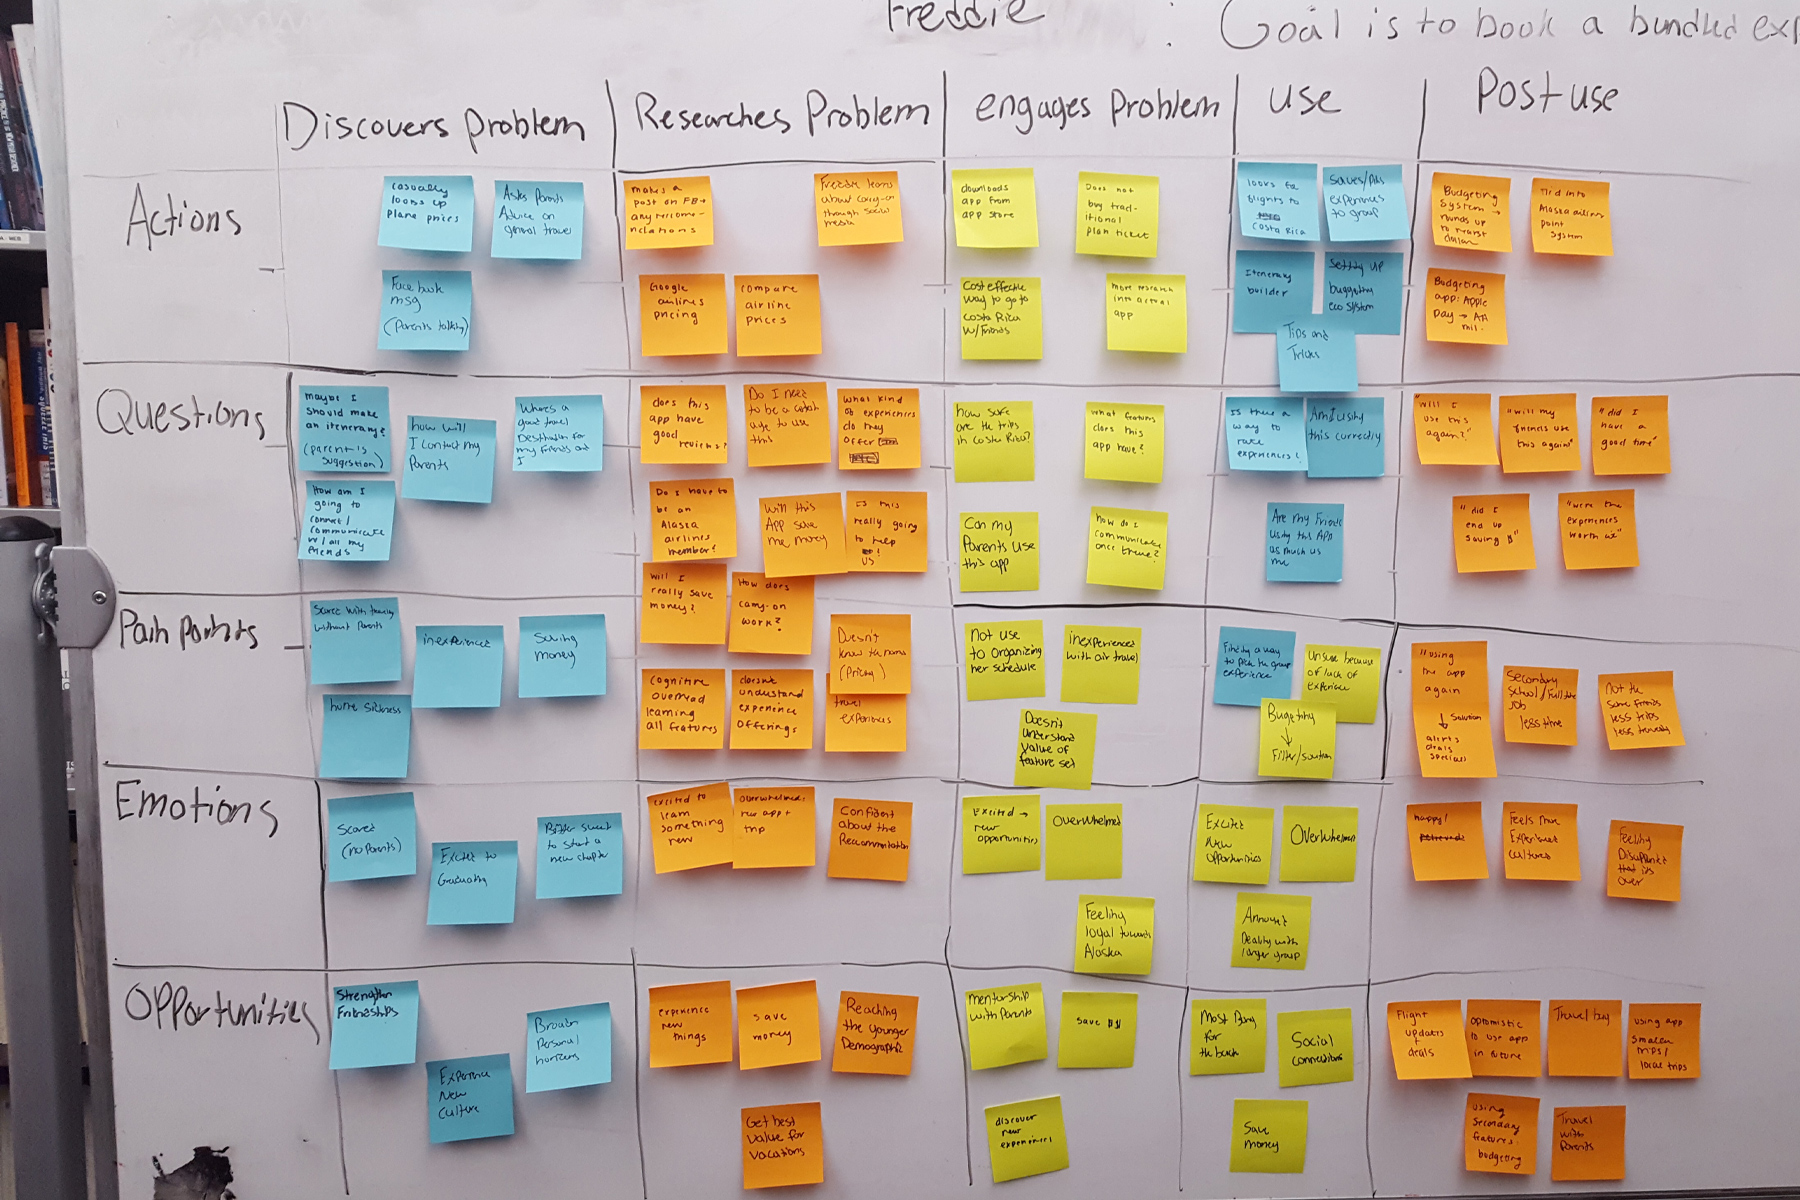 Freddie : Goal is to book a bundled exp
Discovers problem
Researches Problem
engages problem
use
Post use
Actions
casually
looks up
plane prices
Asks Parents
Advice on
general travel
Facebook
msg
(Parents talking)
makes a
post on FB →
any recomme-
ndations
Freddie learns
about carry-on
through social
media
Google
airlines
pricing
compare
airline
prices
downloads
app from
app store
Does not
buy trad-
itional
plan ticket
Cost effective
way to go to
Costa Rica
w/Friends
more research
into actual
app
looks for
flights to
Costa Rica
Saves/Adds
experiences
to group
Itenerary
builder
Setting up
buggeting
eco system
Tips and
Tricks
Budgeting
System →
rounds up
to nearst
dollar
Tied into
Alaska airlines
point
system
Budgeting
app: Apple
Pay → AA
mil.
Questions
maybe I
should make
an itenerary?
(parent's
suggestion)
how will
I contact my
Parents
Wheres a
good travel
Destination for
my friends and
I
How am I
going to
connect/
communicate
w/ all my
friends
does this
app have
good
reviews?
Do I need
to be a certain
age to use
this
what kind
of experiences
do they
offer
Do I have to
be an
Alaska
airlines
member?
Will this
App save
me money
Is this
really going
to help
us?
will I
really save
money?
How does
carry-on
work?
how safe
are the trips
in Costa Rica?
what features
does this
app have?
Can my
Parents use
this app
how do I
communicate
once there?
Is there a
way to
rate
experiences?
Am I using
this correctly
Are my Friends
using this APP
as much as
me
"will I
use this
again?"
"will my
friends use
this again"
"did I
have a
good time"
"did I
end up
saving $"
"were the
experiences
worth it"
Pain points
Scared with traveling
without Parents
inexperienced
Saving
money
home sickness
Doesn't
know the norms
(Pricing)
cognitive
overload
learning
all features
doesnt
understand
experience
offerings
travel
experiences
Not use
to organizing
her schedule
inexperienced
with air travel
Doesn't
understand
value of
feature set
Finding a way
to pick the group
experience
Unsure because
of lack of
experience
Bugeting
↓
Filter/solution
"using
the app
again
↓ Solution
alerts
deals
specials
Secondary
School/Full time
job
less time
Not the
same friends
less trips
less traveling
Emotions
Scared
(no Parents)
Excited to
Graduating
Bitter sweet
to start a
new chapter
excited to
learn
something
new
overwhelmed:
new app +
trip
Confident
about the
Recommendation
Excited →
new
opportunities
OverWhelmed
Feeling
loyal towards
Alaska
Excited
New
opportunities
OverWhelmed
Annoyed
Dealing with
larger group
happy!
Relieved!
Feels more
Experienced
cultures
Feeling
Disappointed
that its
over
Opportunities
Strengthen
Friendships
Experience
New
Culture
Broaden
Personal
horizons
experience
new
things
save
money
Reaching
the younger
Demographic
Get best
value for
vacations
mentorship
with Parents
save $$
discover
new
experiences
Most Bang
for
the buck
Social
connections
Save
money
Flight
updates
+
deals
optomistic
to use app
in future
Travel bug
using app
smaller
trips/
local trips
using
Secondary
features:
budgeting
Travel
with
Parents